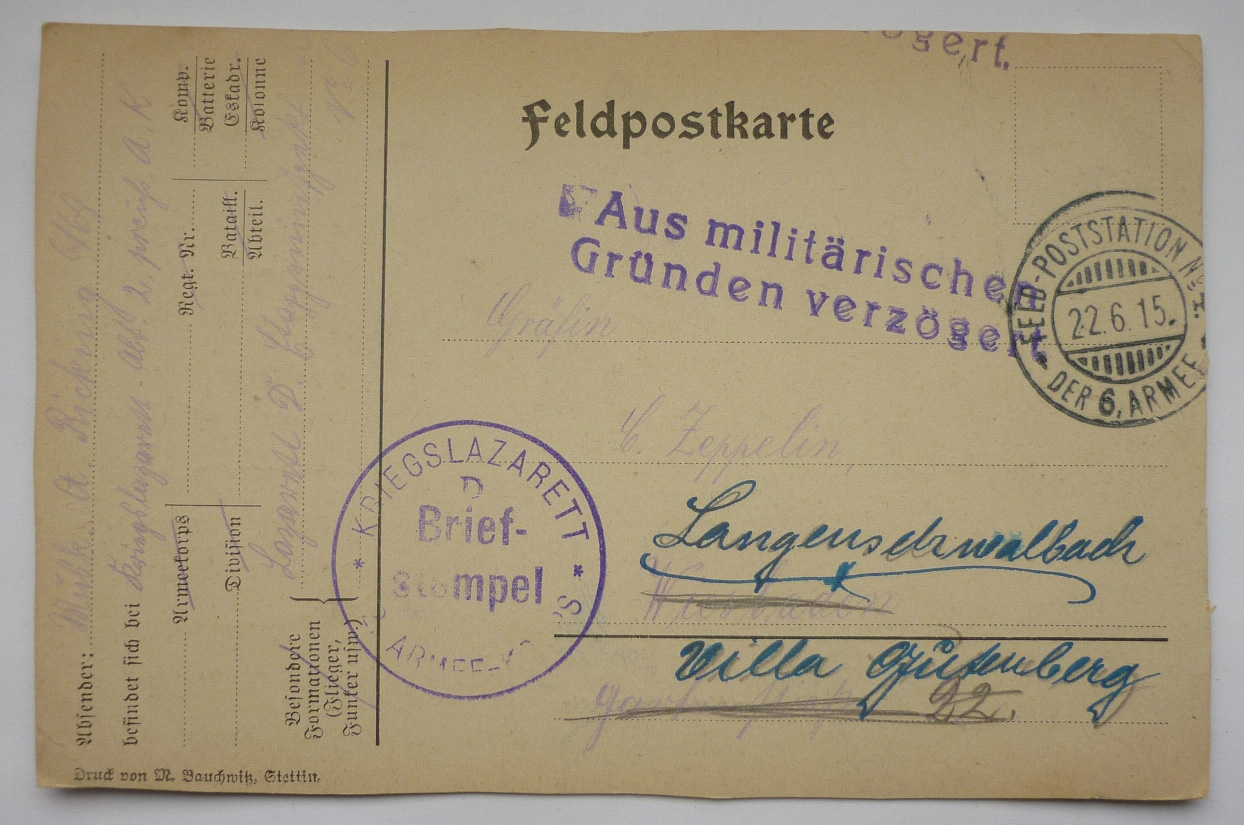 ögert.
Feldpostkarte
Aus militärischen
Gründen verzögert.
FELD-POSTSTATION No
22.6.15.
DER 6. ARMEE
Gräfin
C. Zeppelin,
Langenschwalbach
Wiesbaden
Villa Gutenberg
22.
* KRIEGSLAZARETT *
D
Brief-
stempel
ARMEE-KORPS
Absender: A.
befindet sich bei 2. preuß. A. K
Armeekorps Regt. Nr. Komp.
Batterie
Division Bataill. Eskadr.
Abteil. Kolonne
Lazarett D.
Besondere
Formationen
(Flieger,
Funker usw.)
Druck von M. Bauchwitz, Stettin.